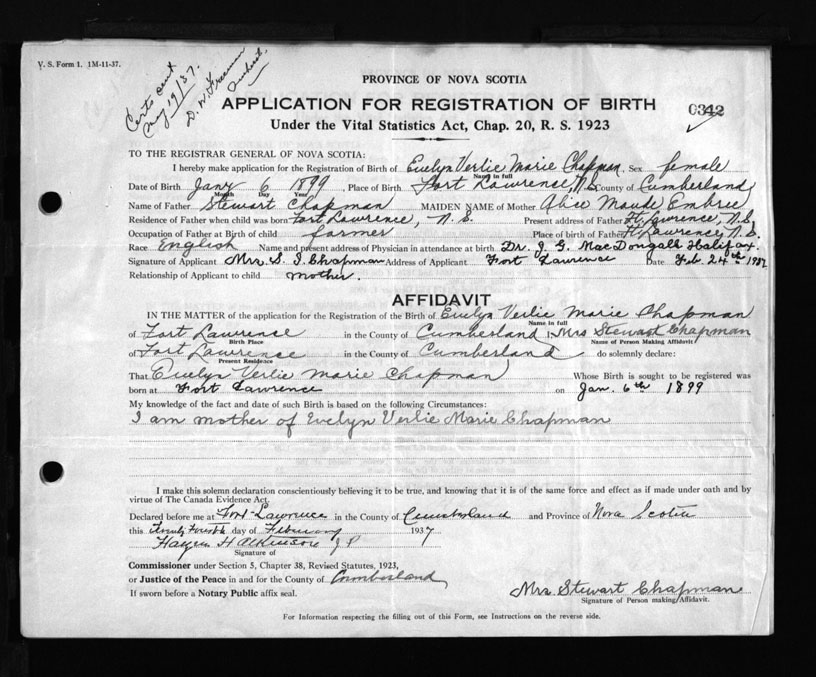 V. S. Form 1. 1M-11-37.
Certs sent
May 19/37.
D. W. Freeman
Amherst.
PROVINCE OF NOVA SCOTIA
APPLICATION FOR REGISTRATION OF BIRTH
0342
Under the Vital Statistics Act, Chap. 20, R. S. 1923
TO THE REGISTRAR GENERAL OF NOVA SCOTIA:
I hereby make application for the Registration of Birth of Evelyn Verlie Marie Chapman, Sex female
Name in full
Date of Birth Jany 6 1899, Place of Birth Fort Lawrence, N.S. County of Cumberland
Month Day Year
Name of Father Stewart Chapman MAIDEN NAME of Mother Alice Maude Embree
Residence of Father when child was born Fort Lawrence, N. S. Present address of Father Ft. Lawrence, N.S.
Occupation of Father at Birth of child farmer Place of birth of Father Ft. Lawrence, N. S.
Race English Name and present address of Physician in attendance at birth Dr. J. G. MacDougall Halifax.
Signature of Applicant Mrs. S. I. Chapman Address of Applicant Fort Lawrence Date Feb. 24th 1937
Relationship of Applicant to child mother.
AFFIDAVIT
IN THE MATTER of the application for the Registration of the Birth of Evelyn Verlie Marie Chapman
Name in full
of Fort Lawrence in the County of Cumberland I, Mrs Stewart Chapman
Birth Place Name of Person Making Affidavit
of Fort Lawrence in the County of Cumberland do solemnly declare:
Present Residence
That Evelyn Verlie Marie Chapman Whose Birth is sought to be registered was
born at Fort Lawrence on Jan. 6th 1899
My knowledge of the fact and date of such Birth is based on the following Circumstances:
I am mother of Evelyn Verlie Marie Chapman
I make this solemn declaration conscientiously believing it to be true, and knowing that it is of the same force and effect as if made under oath and by
virtue of The Canada Evidence Act.
Declared before me at Fort Lawrence in the County of Cumberland and Province of Nova Scotia
this Twenty Fourth day of February 1937
H Atkinson J P
Signature of
Commissioner under Section 5, Chapter 38, Revised Statutes, 1923,
or Justice of the Peace in and for the County of Cumberland
If sworn before a Notary Public affix seal.
Mrs. Stewart Chapman
Signature of Person making Affidavit.
For Information respecting the filling out of this Form, see Instructions on the reverse side.